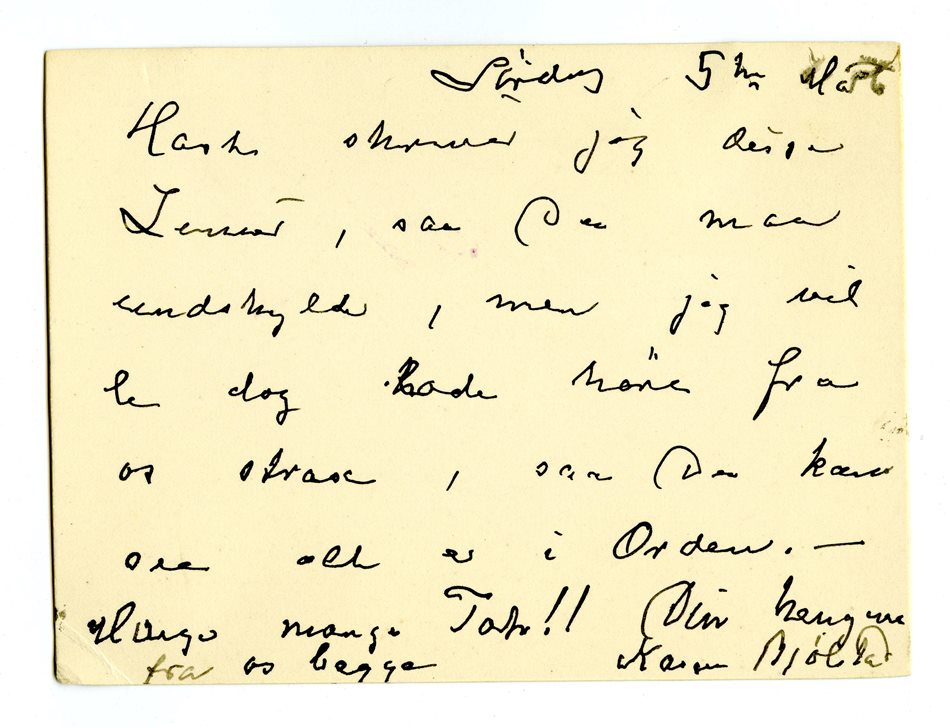 Söndag 5te
skriver jeg disse
Linier, saa Du maa
undskylde, men jeg vil
le dog lade höre fra
os strax, saa Du kan
see alt er i Orden. —
mange Tak!! Din hengivne
fra os begge Karen Bjölstad